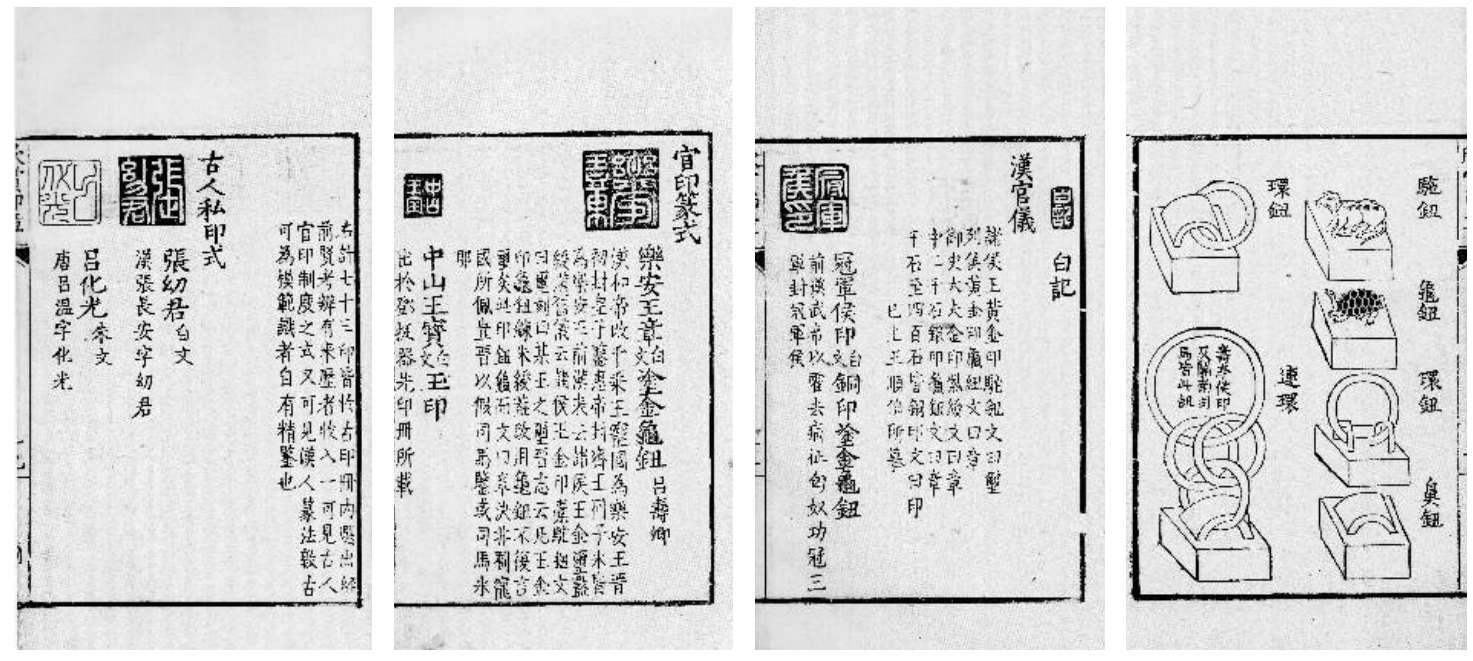 駝鈕
龜鈕
環鈕
鼻鈕
環鈕
連環
壽亭侯印
又關南司
馬皆此鈕
白記
白記
漢官儀
諸侯王黃金印駝鈕文曰璽
列侯黃金印龜紐文曰章
御史大夫金印紫綬文曰章
中二千石銀印龜鈕文曰章
千石至四百石皆銅印文曰印
已上王順伯所摹
冠軍侯印
冠軍侯印白文銅印塗金龜鈕
前漢武帝以霍去病征匈奴功冠三
軍封冠軍侯
官印篆式
樂安王章
樂安王章白文塗金龜鈕呂壽卿
漢和帝改千乘王寵國為樂安王晉
初封皇子鑒惠帝封齊王冏子冰皆
為樂安王前漢表云諸侯王金璽盭
綬漢舊儀云諸侯王金印橐駝鈕文
曰璽刻曰某王之璽晉志云凡王金
印龜鈕纁朱綬蓋改用龜鈕不復言
璽矣此印鈕龜而文曰章決非和寵
國所佩豈晉以假司馬鑒或司馬冰
耶
中山王寶
中山王寶白文玉印
出於鄧挺器先印冊所載
右計七十三印皆於古印冊內選出經
前賢考辨有來歷者收入一可見古人
官印制度之式又可見漢人篆法敦古
可為模範識者自有精鑒也
古人私印式
張幼君
張幼君白文
漢張長安字幼君
呂化光
呂化光朱文
唐呂溫字化光